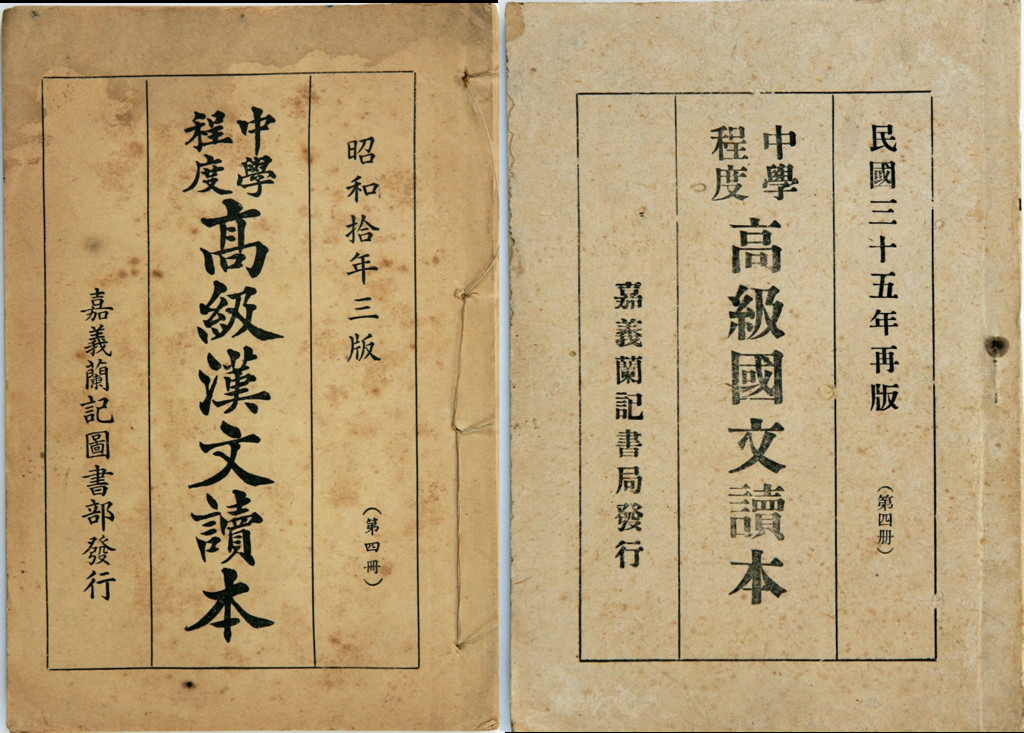 昭和拾年三版
（第四冊）
中學
程度
高級漢文讀本
嘉義蘭記圖書部發行
民國三十五年再版
（第四册）
中學
程度
高級國文讀本
嘉義蘭記書局發行